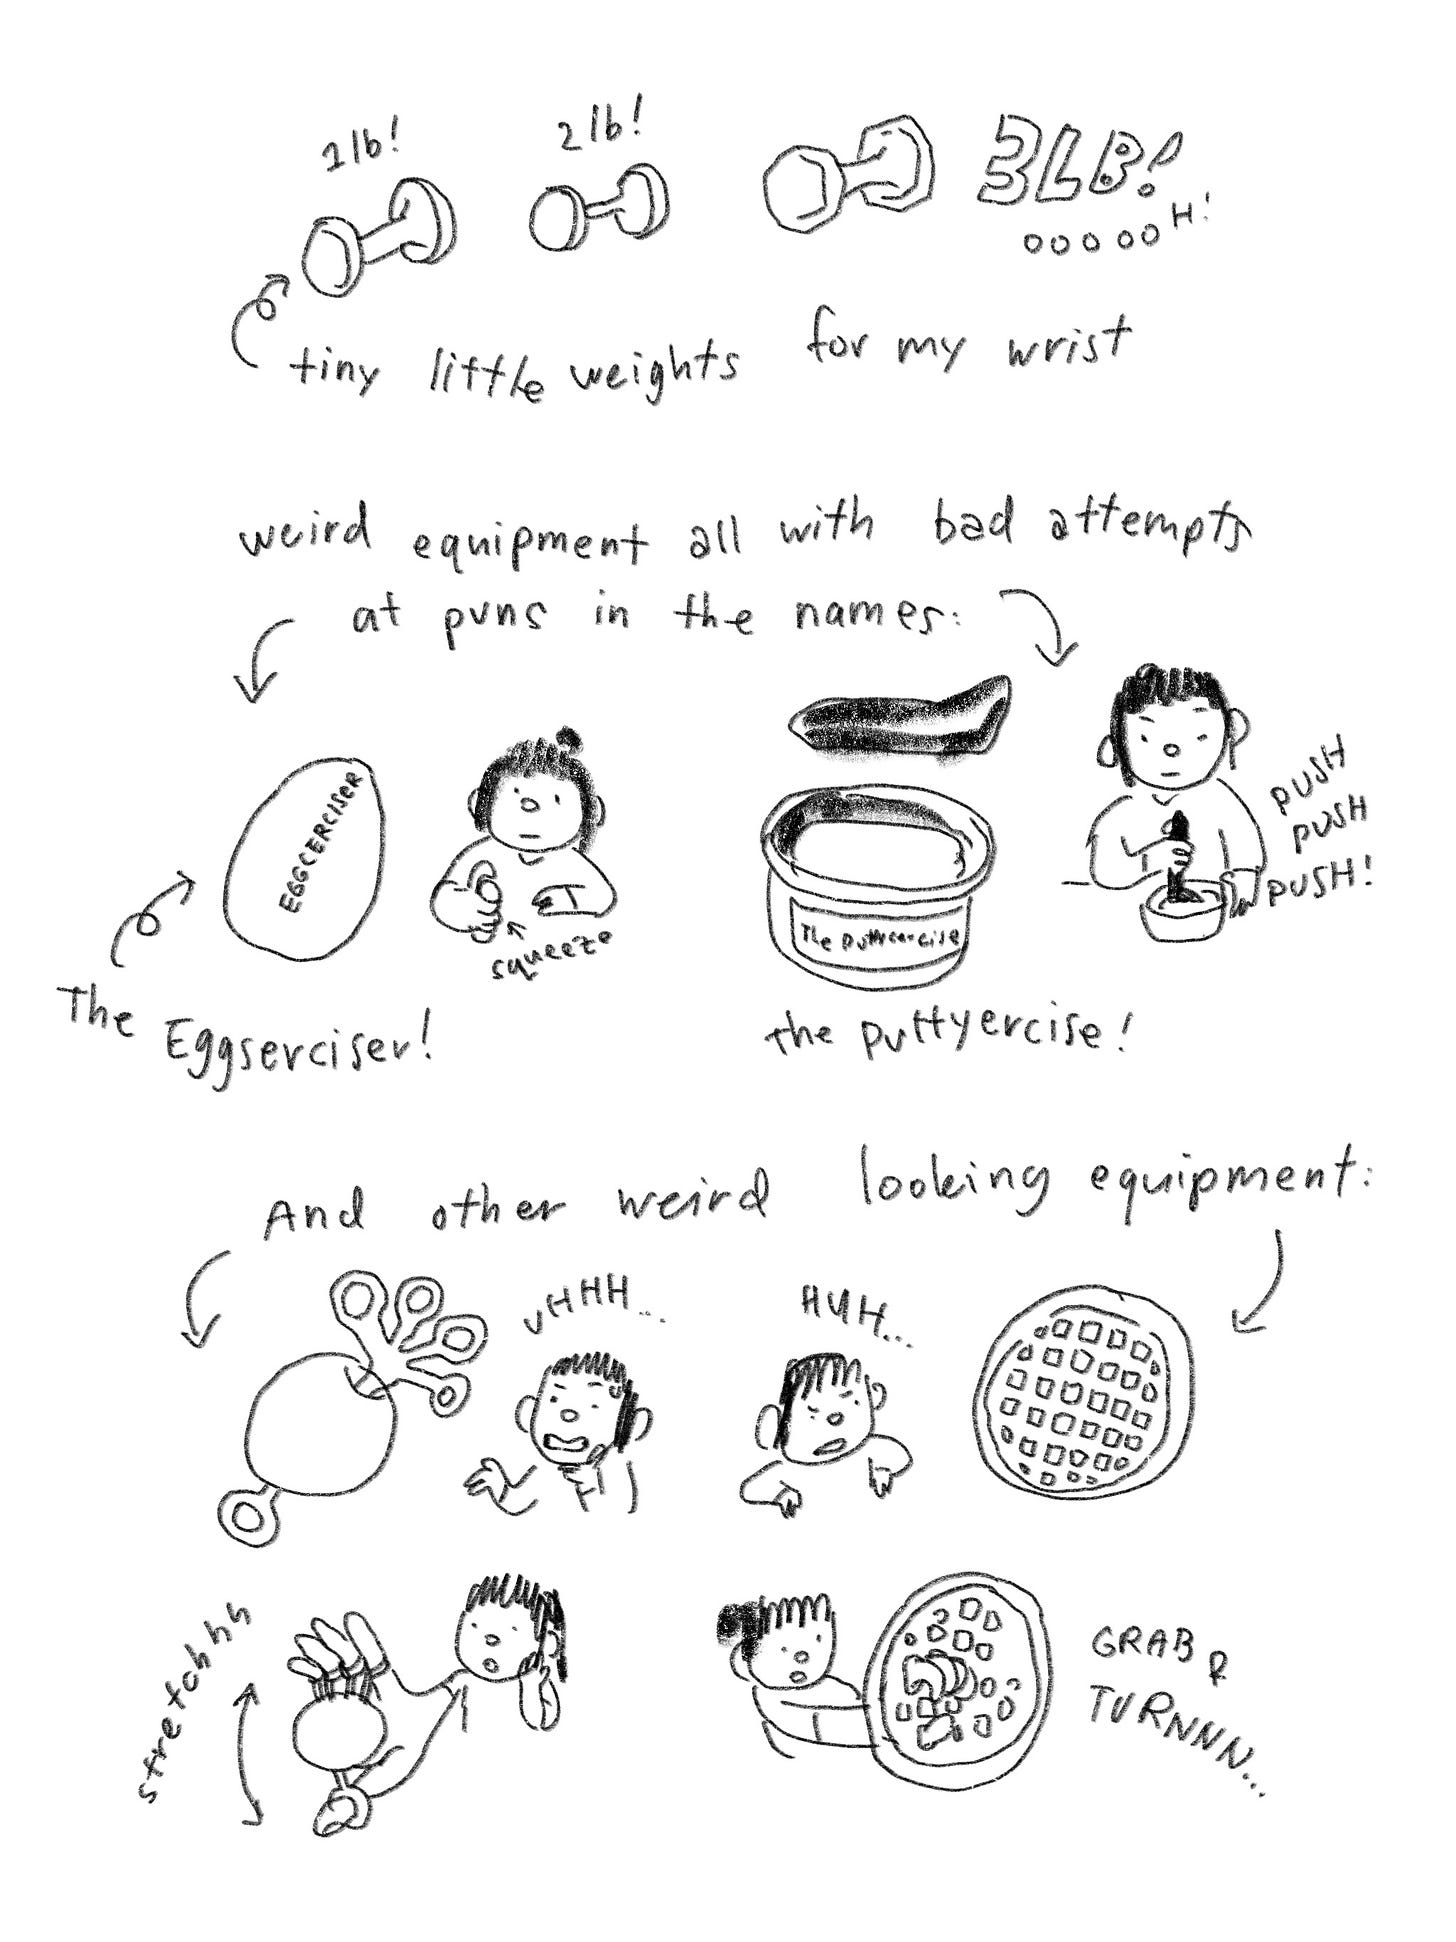 1lb!
2lb!
3LB!
OOOOOH!
tiny little weights for my wrist
weird equipment all with bad attempts
at puns in the names:
EGGCERCISER
squeeze
The Eggserciser!
The Puttyercise
PUSH
PUSH
PUSH!
the puttyercise!
And other weird looking equipment:
UHHH...
HUH...
stretchhh
GRAB &
TURNNN...